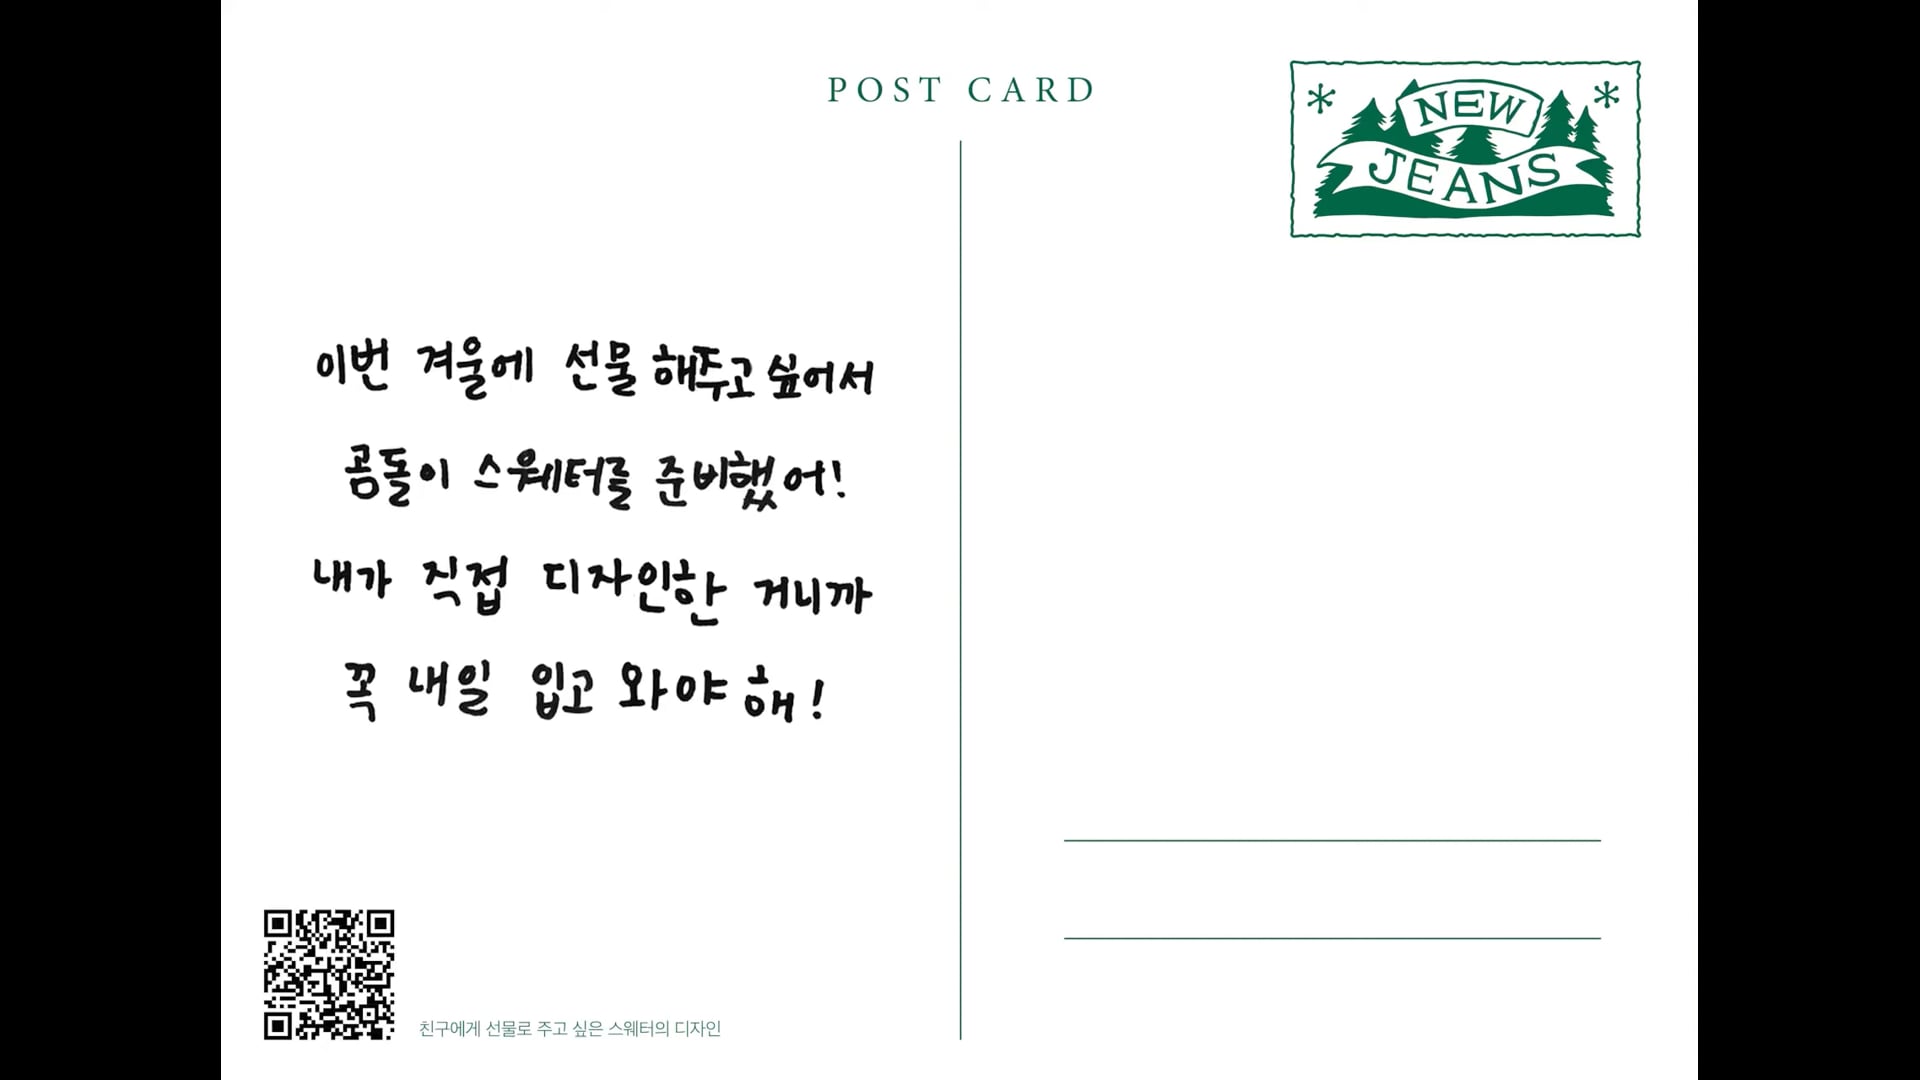 POST CARD
NEW
JEANS
이번 겨울에 선물 해주고 싶어서
곰돌이 스웨터를 준비했어!
내가 직접 디자인한 거니까
꼭 내일 입고 와야 해!
친구에게 선물로 주고 싶은 스웨터의 디자인